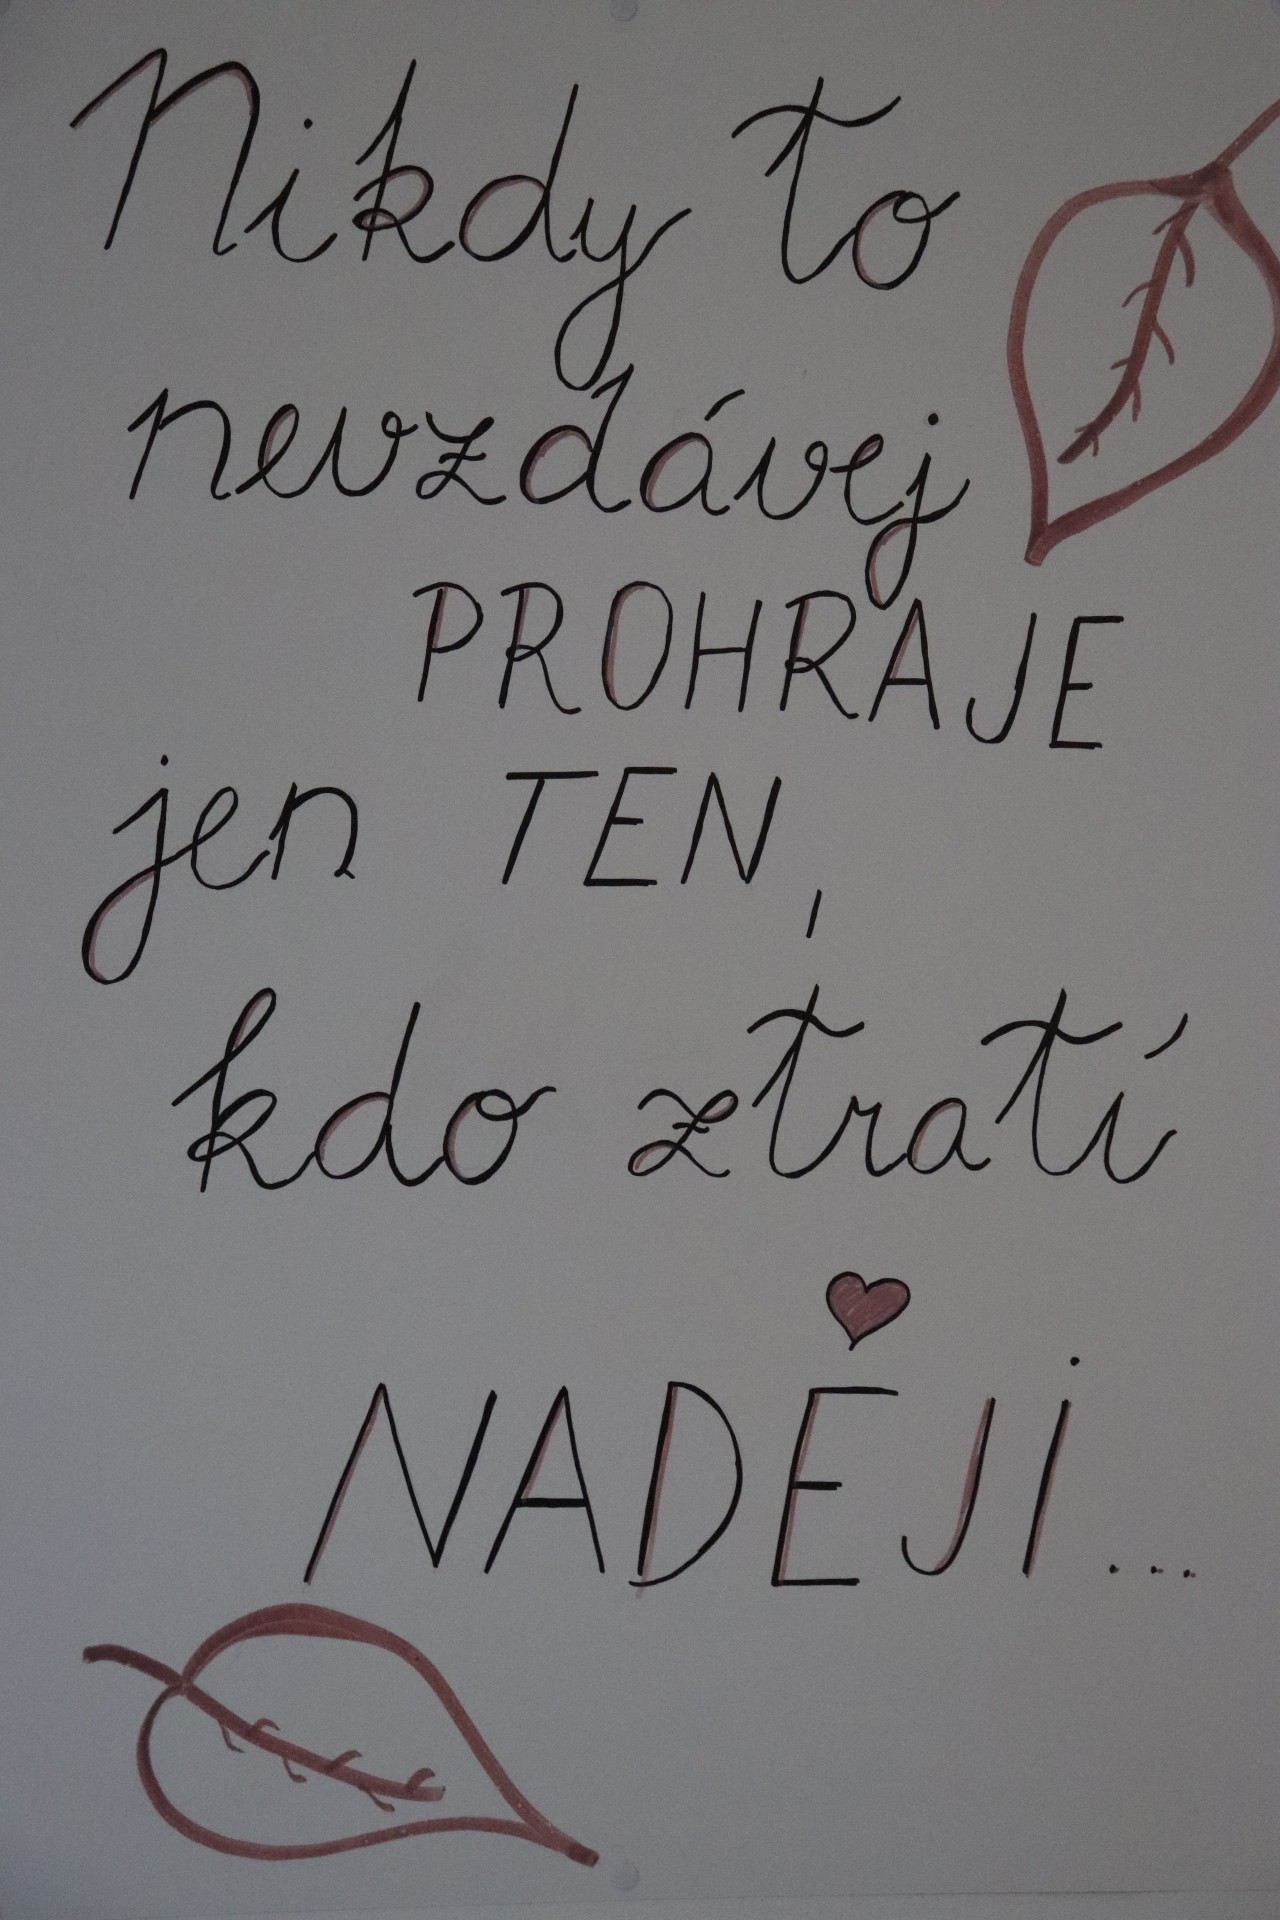 Nikdy to
nevzdávej
PROHRAJE
jen TEN,
kdo ztratí
NADĚJI...